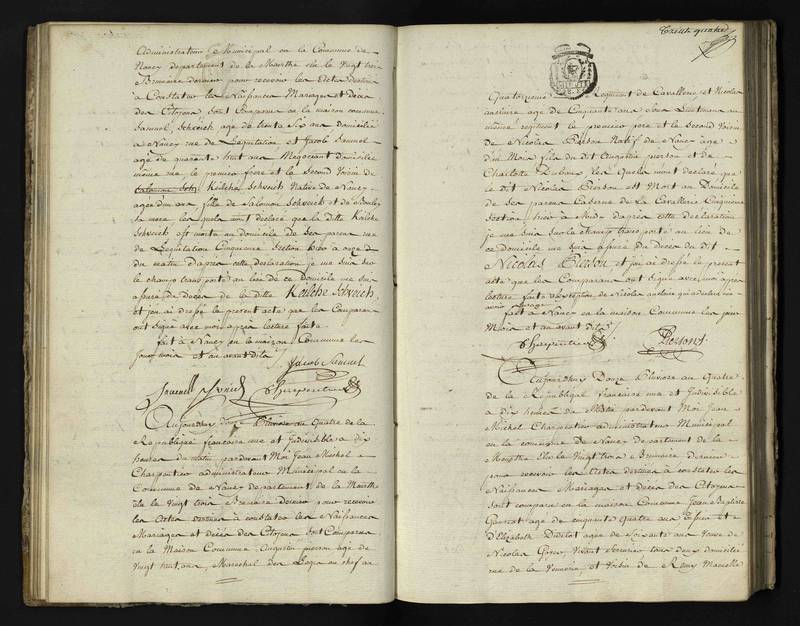 Administrateur Municipal en la Commune de
Nancy departement de la Meurthe elu le Vingt trois
Brumaire dernier pour recevoir les actes destinés
a Constater les Naissances Mariages et décès
des Citoyens sont Comparus en la maison commune
Samuel Schveich agé de trente Six ans domicilié
a Nancy rue de Legalitation et Jacob Samuel
agé de quarante huit ans Negociant domicilié
même rue le premier frere et le Second Voisin de
Keilche Schveich Native de Nancy
agée d'un an fille de Salomon Schveich et de
Sa mere les quels m'ont déclaré que la ditte Keilche
Schveich est morte au domicile de Ses parens rue
de Cinquieme Section hier a
du matin d'après cette déclaration je me suis sur
le champ transporté au lieu de ce Domicile me suis
assuré du décès de la ditte Keilche Schveich
et j'en ai dressé le present acte que les Comparans
ont signé avec moi après lecture faite
fait a Nancy en la maison Commune les
jour mois et an avant dits
Jacob Samuel
Charpentier
Aujourd'huy Douze Pluviose an Quatre de la
Republique française une et Indivisible a dix
heures du matin pardevant Moi Jean Michel
Charpentier administrateur Municipal en la
Commune de Nancy departement de la Meurthe
élu le Vingt trois Brumaire dernier pour recevoir
les Actes destinés a constater les Naissances
Mariages et décès des Citoyens Sont Comparus
en la Maison Commune Augustin pierson agé de
Vingt huit ans, Marechal des Logis en chef au
Trente quatre
Quatorzieme Regiment de Cavallerie, et Nicolas
anclaire agé de Cinquante ans Sous Lieutenant au
même regiment le premier pere et le Second Voisin
de Nicolas Pierson Natif de Nancy agé
d'un Mois fils du dit Augustin pierson et de
Charlotte Dubois les Quels m'ont declaré que
le dit Nicolas Pierson est Mort au Domicile
de Ses parens Caserne de la Cavallerie Cinquieme
Section, hier a Midi d'après cette déclaration
je me suis Sur le champ transporté au lieu de
ce Domicile me suis assuré du Décès du dit
Nicolas Pierson, et j'en ai dressé le present
acte que les Comparans ont signé avec moi après
lecture faite a l'exception de Nicolas anclaire qui a declaré ne
fait a Nancy en la maison Commune les jour
Mois et an avant dits
Charpentier Pierson
Aujourd'huy Douze Pluviose an Quatre
de la Republique française une et Indivisible
a dix heures du Matin pardevant Moi Jean
Michel Charpentier administrateur Municipal
en la commune de Nancy departement de la
Meurthe Elu le Vingt trois Brumaire dernier
pour recevoir les Actes destinés a constater les
Naissances Mariages et décès des Citoyens
Sont comparus en la maison Commune Jean Baptiste
agé de cinquante quatre ans et
d'Elizabeth Didelot agée de Soixante ans Veuve de
Nicolas Vivant tous deux domiciliés
rue de la et Voisin de Remy Marcelle